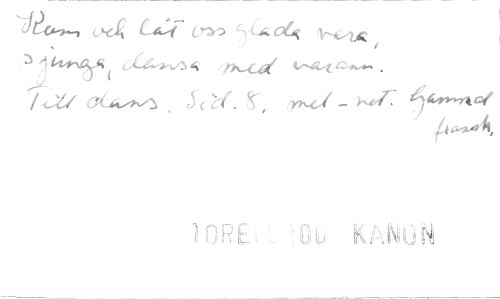 Kom och låt oss glada vara,
sjunga, dansa med varann.
Till dans. Sid. 8, mel-not. Gammal
fransk.
KANON